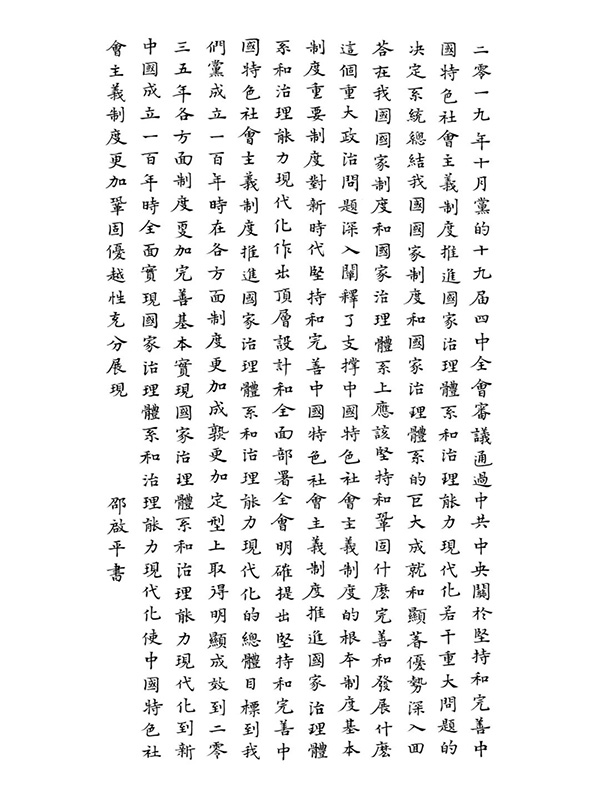 二零一九年十月黨的十九届四中全會審議通過中共中央關於堅持和完善中
國特色社會主義制度推進國家治理體系和治理能力現代化若干重大問題的
决定系統總結我國國家制度和國家治理體系的巨大成就和顯著優勢深入回
答在我國國家制度和國家治理體系上應該堅持和鞏固什麼完善和發展什麼
這個重大政治問題深入闡釋了支撐中國特色社會主義制度的根本制度基本
制度重要制度對新時代堅持和完善中國特色社會主義制度推進國家治理體
系和治理能力現代化作出頂層設計和全面部署全會明確提出堅持和完善中
國特色社會主義制度推進國家治理體系和治理能力現代化的總體目標到我
們黨成立一百年時在各方面制度更加成熟更加定型上取得明顯成效到二零
三五年各方面制度更加完善基本實現國家治理體系和治理能力現代化到新
中國成立一百年時全面實現國家治理體系和治理能力現代化使中國特色社
會主義制度更加鞏固優越性充分展現 邵啟平書